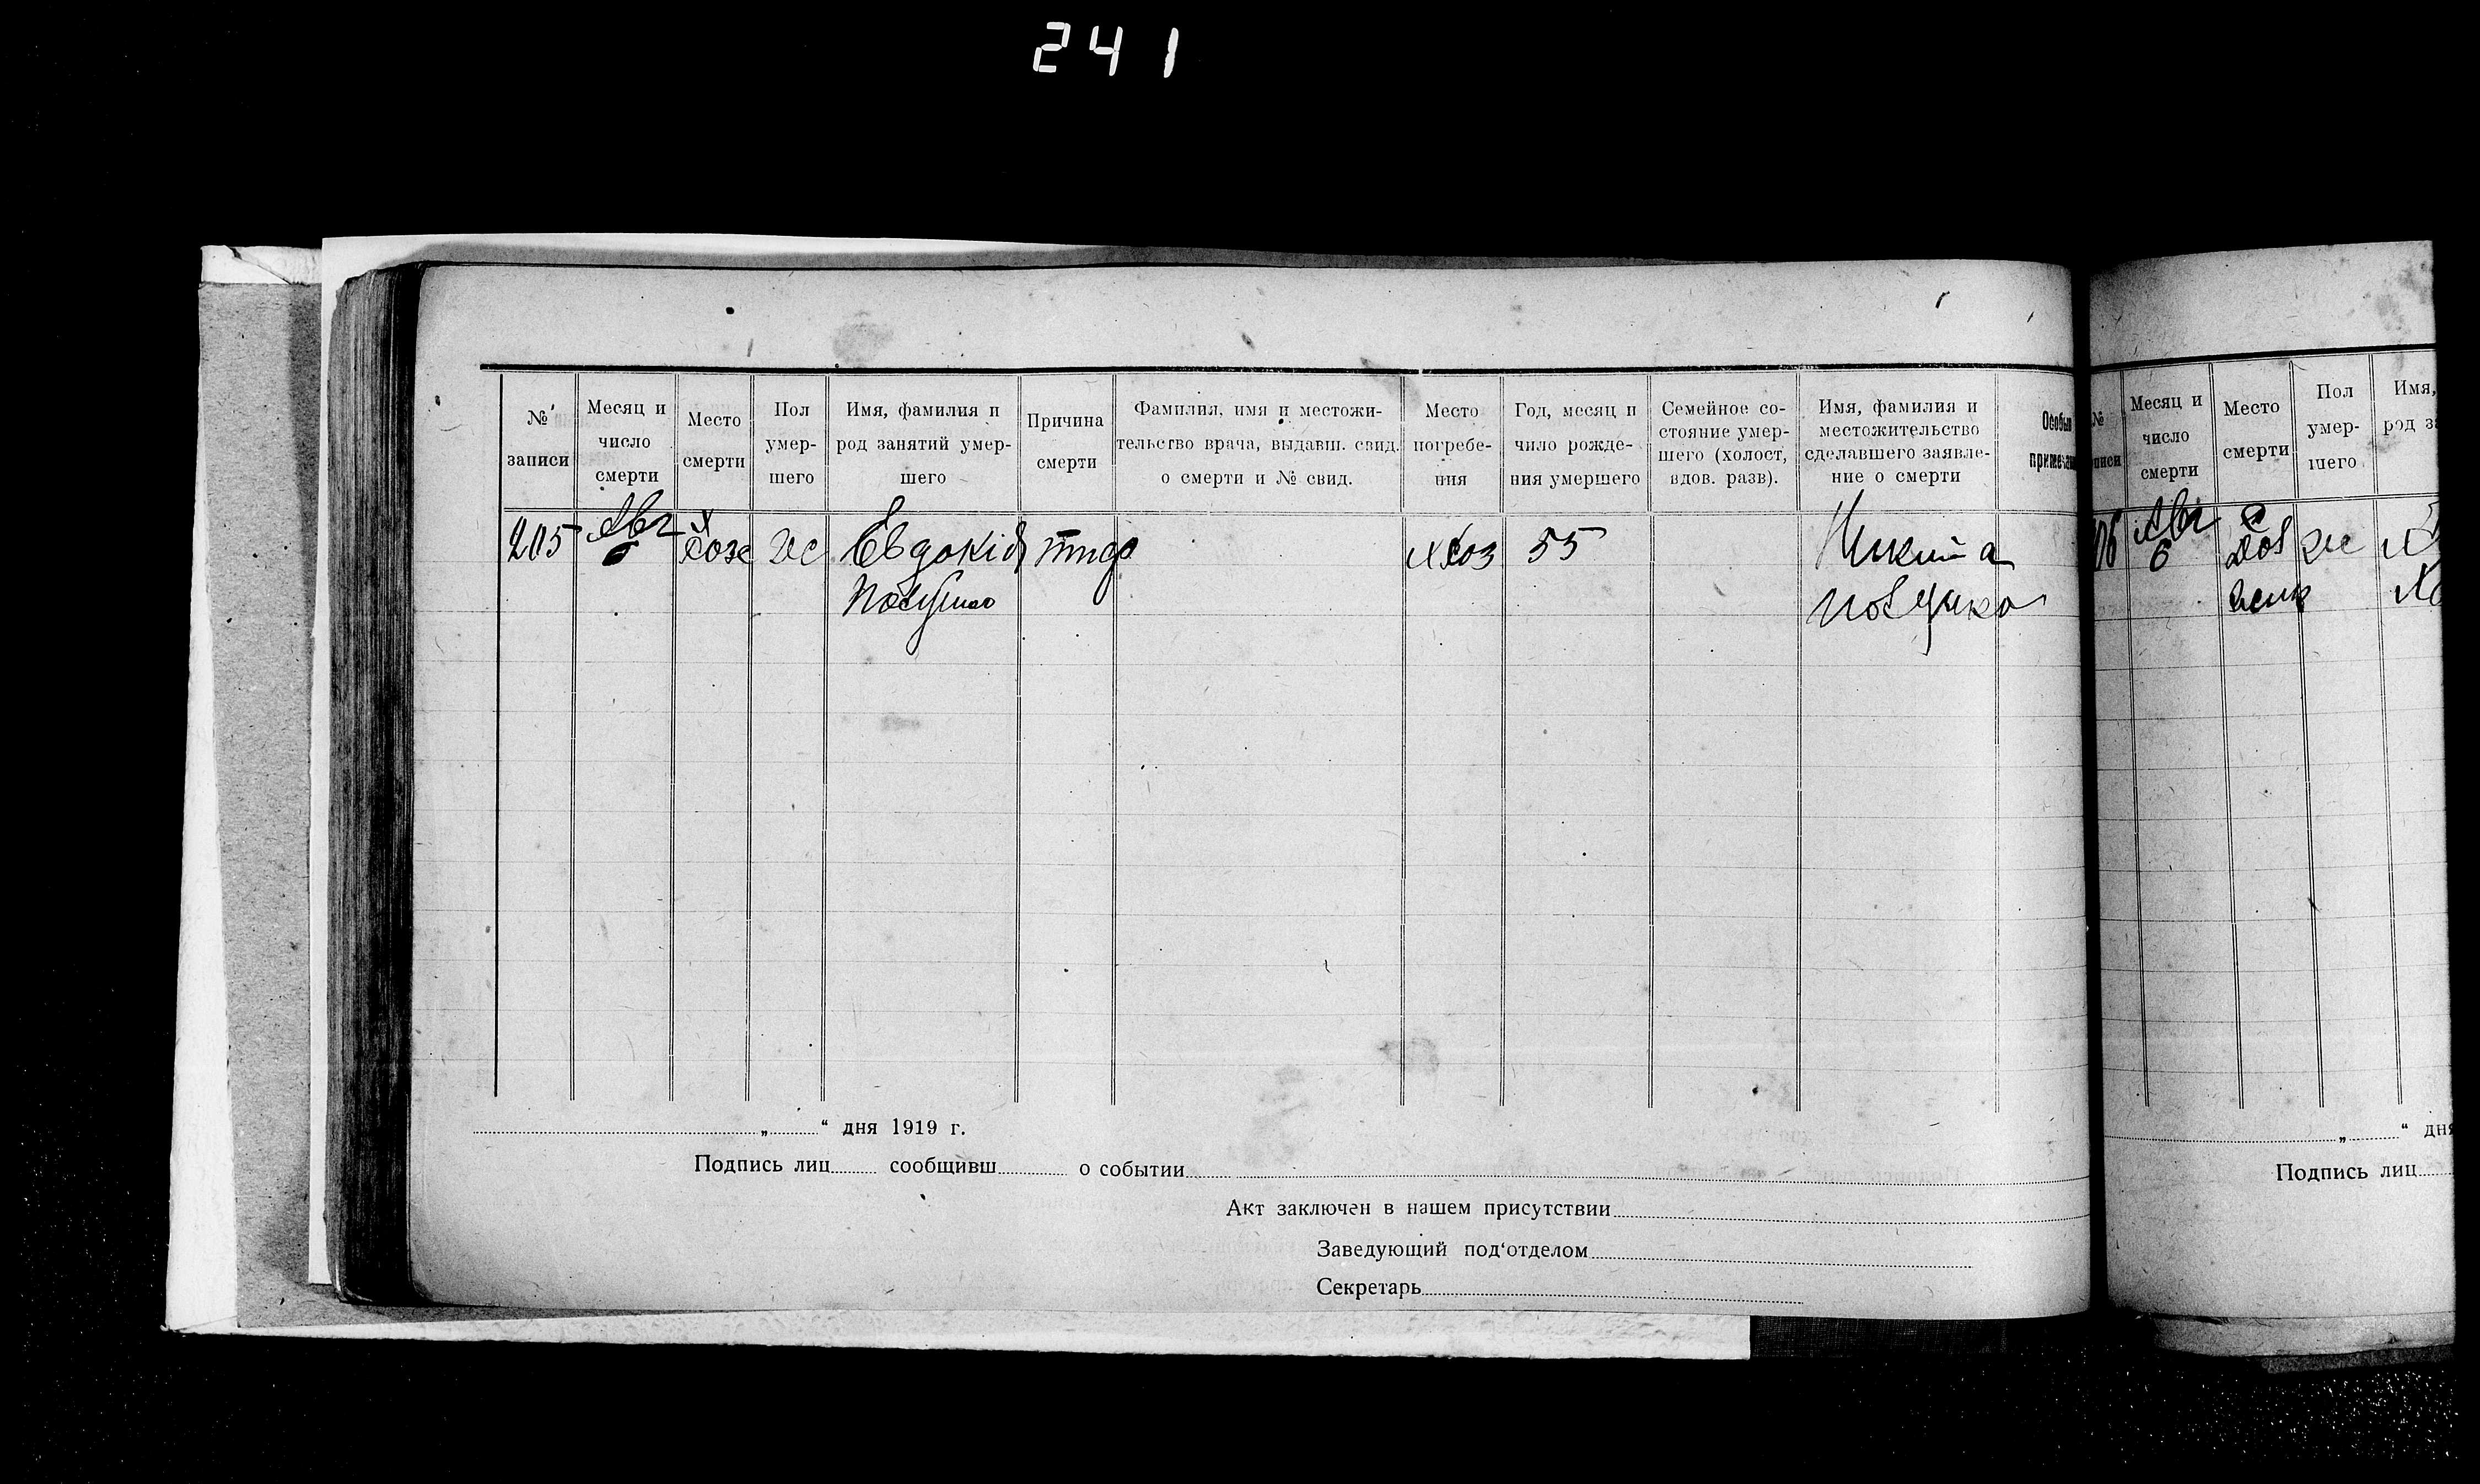 241
№ записи
Месяц и число смерти
Место смерти
Пол умер- шего
Имя, фамилия и род занятий умер- шего
Причина смерти
Фамилия, имя и местожи- тельство врача, выдавш. свид. о смерти и № свид.
Место погребе- ния
Год, месяц и число рожде- ния умершего
Семейное со- стояние умер- шего (холост, вдов. разв).
Имя, фамилия и местожительство сделавшего заявле- ние о смерти
205
Авг
6
Евдокія
55
Никита
„ “ дня 1919 г.
Подпись лиц сообщивш о событии
Акт заключен в нашем присутствии
Заведующий под‘отделом
Секретарь
№
Месяц и число смерти
Место смерти
Пол умер- шего
Имя,
Авг
6
„ “
Подпись лиц